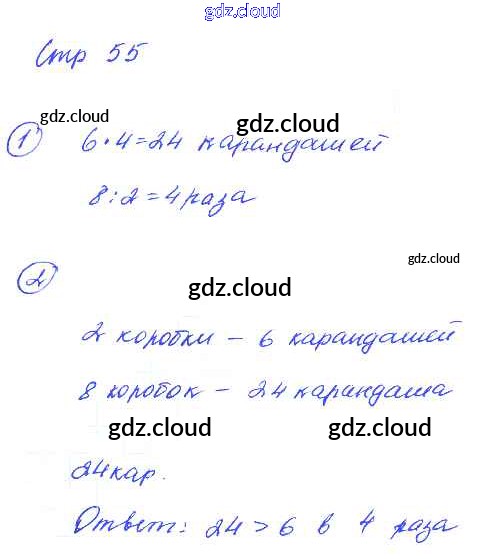 gdz.cloud
Стр 55
gdz.cloud
gdz.cloud
1 6·4=24 карандашей
8:2=4 раза
gdz.cloud
2
gdz.cloud
2 коробки – 6 карандашей
8 коробок – 24 карандаша
gdz.cloud gdz.cloud
24 кар.
Ответ: 24 > 6 в 4 раза